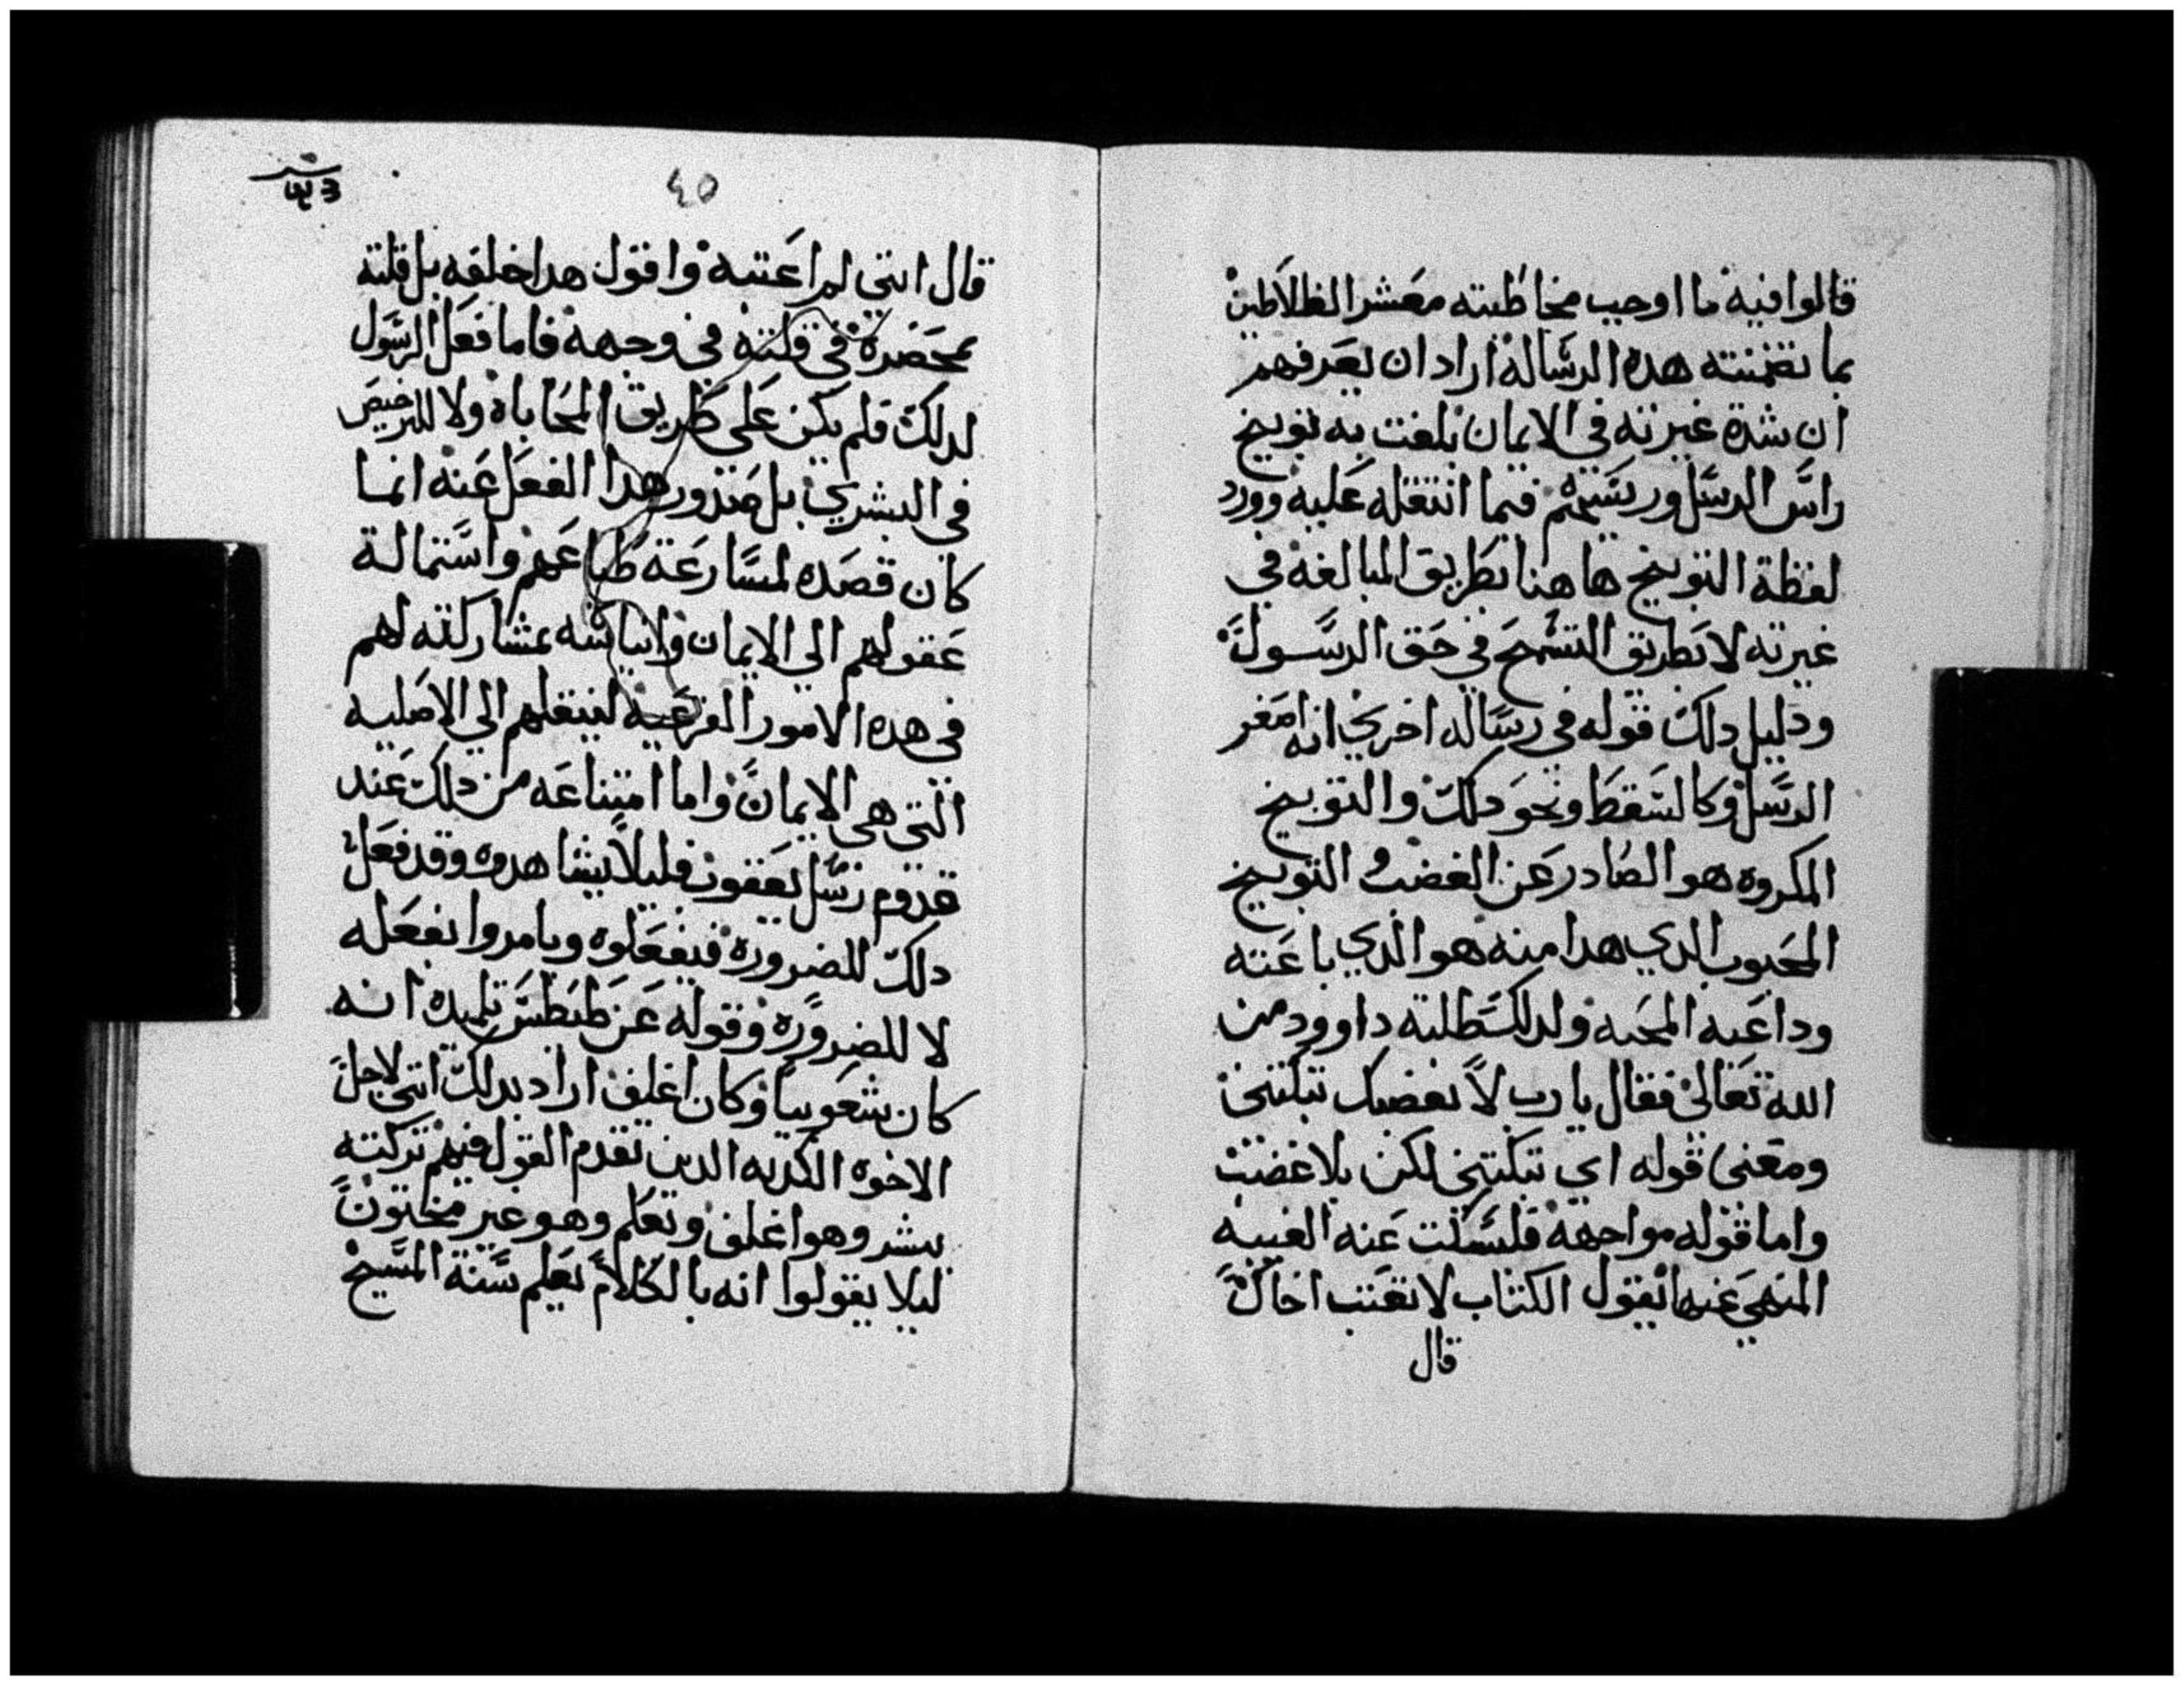 قالوا فيه ما اوجب مخاطبته معشر الغلاطين
بما تضمنته هده الرساله اراد ان يعرفهم
ان شدة غيرته في الايمان بلغت به توبيخ
راس الرسل ورييسهم فيما انتقله عليه وورد
لفظة التوبيخ هاهنا بطريق المبالغه في
غيرته لا بطريق التسمج في حق الرسول
ودليل دلك قوله في رساله اخري انه اصغر
الرسل وكالسقط ونحو دلك والتوبيخ
المكروه هو الصادر عن الغضب والتوبيخ
المحبوب الدي هدا منه هو الدي باعته
وداعيه المحبه ولدلك طلبه داوود من
الله تعالي فقال يا رب لا بغضبك تبكتني
ومعني قوله اي تبكتني لكن بلا غضب
واما قوله مواجهة فلسكت عنه الغيبه
المنهي عنها بقول الكتاب لا تغتب اخاك
قال
٤٥
قال انني لم اغتبه واقول هدا خلفه بل قلته
بمحضره في قلته في وجهه فاما فعل الرسول
لدلك فلم يكن علي طريق المحاباه ولا للترخيص
في البشري بل صدور هدا الفعل عنه انما
كان قصده لمسارعة طباعهم واستمالة
عقولهم الي الايمان وايناسه بمشاركته لهم
في هده الامور الفرعيه لينقلهم الي الاصليه
التي هي الايمان واما امتناعه من دلك عند
قدوم رسل يعقوب فليلا يشاهدوه وقد فعل
دلك للضروره فيفعلوه ويامروا بفعله
لا للضروره وقوله عن طيطس تلميده انه
كان شعوبيا وكان اغلف اراد بدلك انني لاجل
الاخوه الكدبه الدين تقدم القول فيهم تركته
يبشر وهو اغلف ويعلم وهو غير مختون
ليلا يقولوا انه بالكلام يعلم سنة المسيح